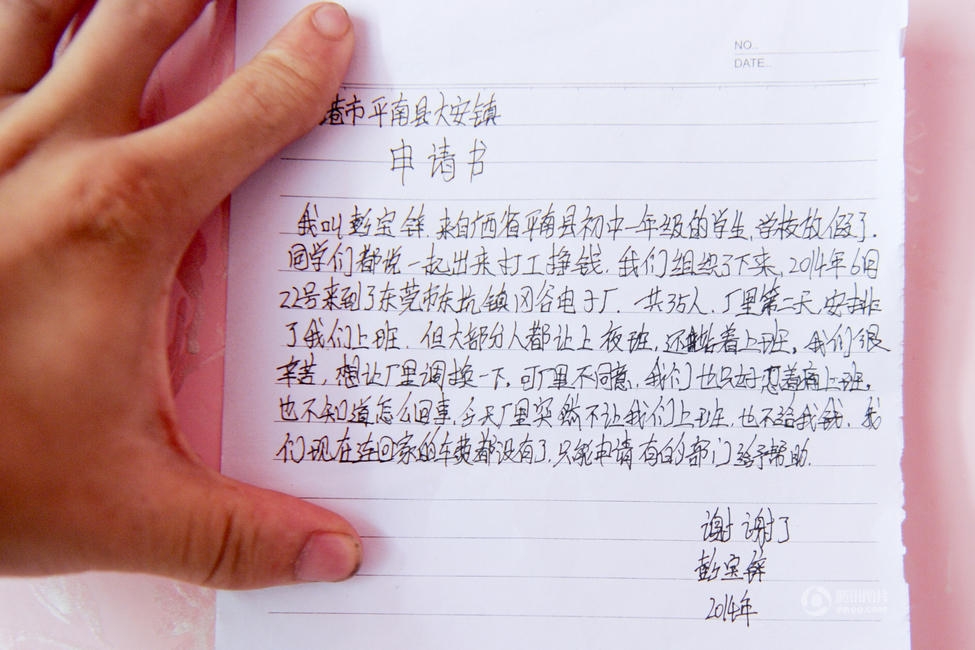 NO..
DATE..
港市平南县大安镇
申请书
我叫彭宝锌.来自广西省平南县初中一年级的学生,学校放假了.
同学们都说一起出来打工挣钱.我们组织了下来,2014年6月
22号来到了东莞市东坑镇冈谷电子厂.共35人.厂里第二天,安排
了我们上班.但大部分人都让上夜班,还站着上班。我们很
辛苦,想让厂里调换一下,可厂里不同意,我们也只好忍着痛上班,
也不知道怎么回事,今天厂里突然不让我们上班,也不给我钱,我
们现在连回家的车费都没有了,只能申请有的部门给予帮助.
谢谢了
彭宝锌
2014年
腾讯图片